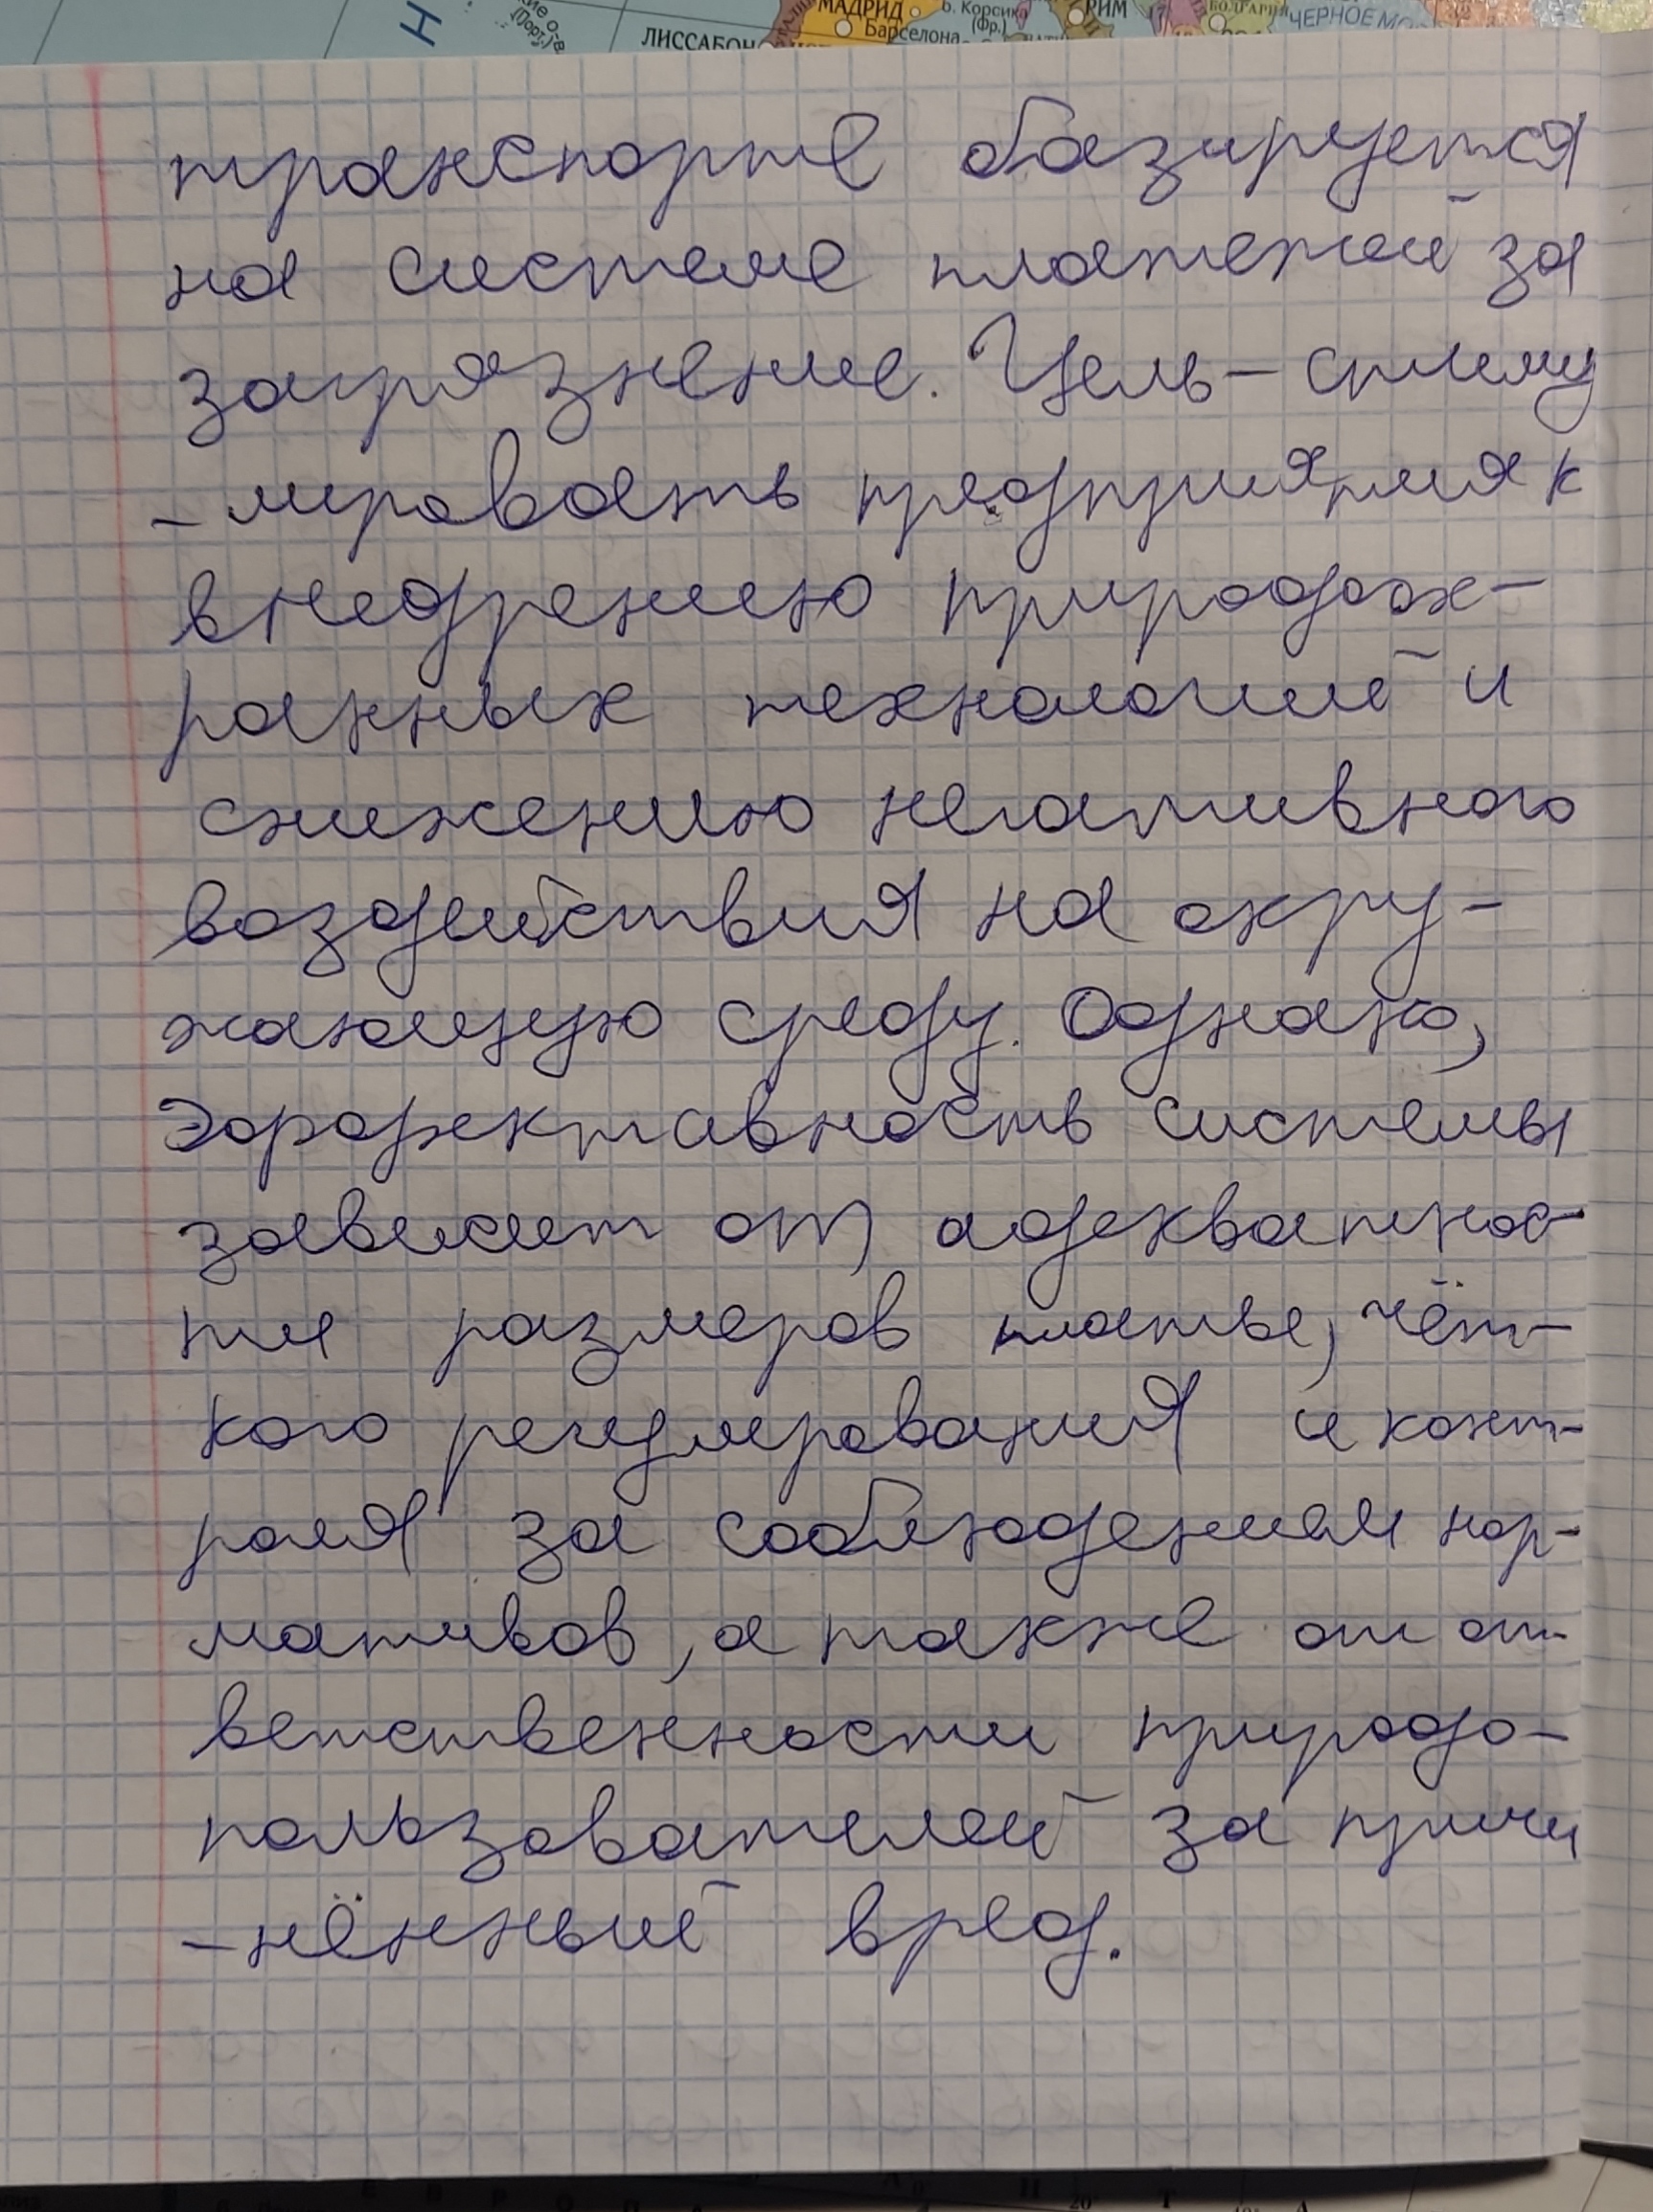 МАДРИД о. Корсика РИМ БОЛГАРИЯ ЧЕРНОЕ МО
(Порт.) ЛИССАБОН Барселона (Фр.)
транспорте базируется
на системе платежей за
загрязнение. Цель – стиму
-лировать предприятия к
внедрению природоох-
ранных технологий и
снижению негативного
воздействия на окру-
жающую среду. Однако,
эффективность системы
зависит от адекватнос-
ти размеров платы, чёт-
кого регулирования и конт-
роля за соблюдением нор-
мативов, а также от от-
ветственности природо-
пользователей за причи
-нённый вред.